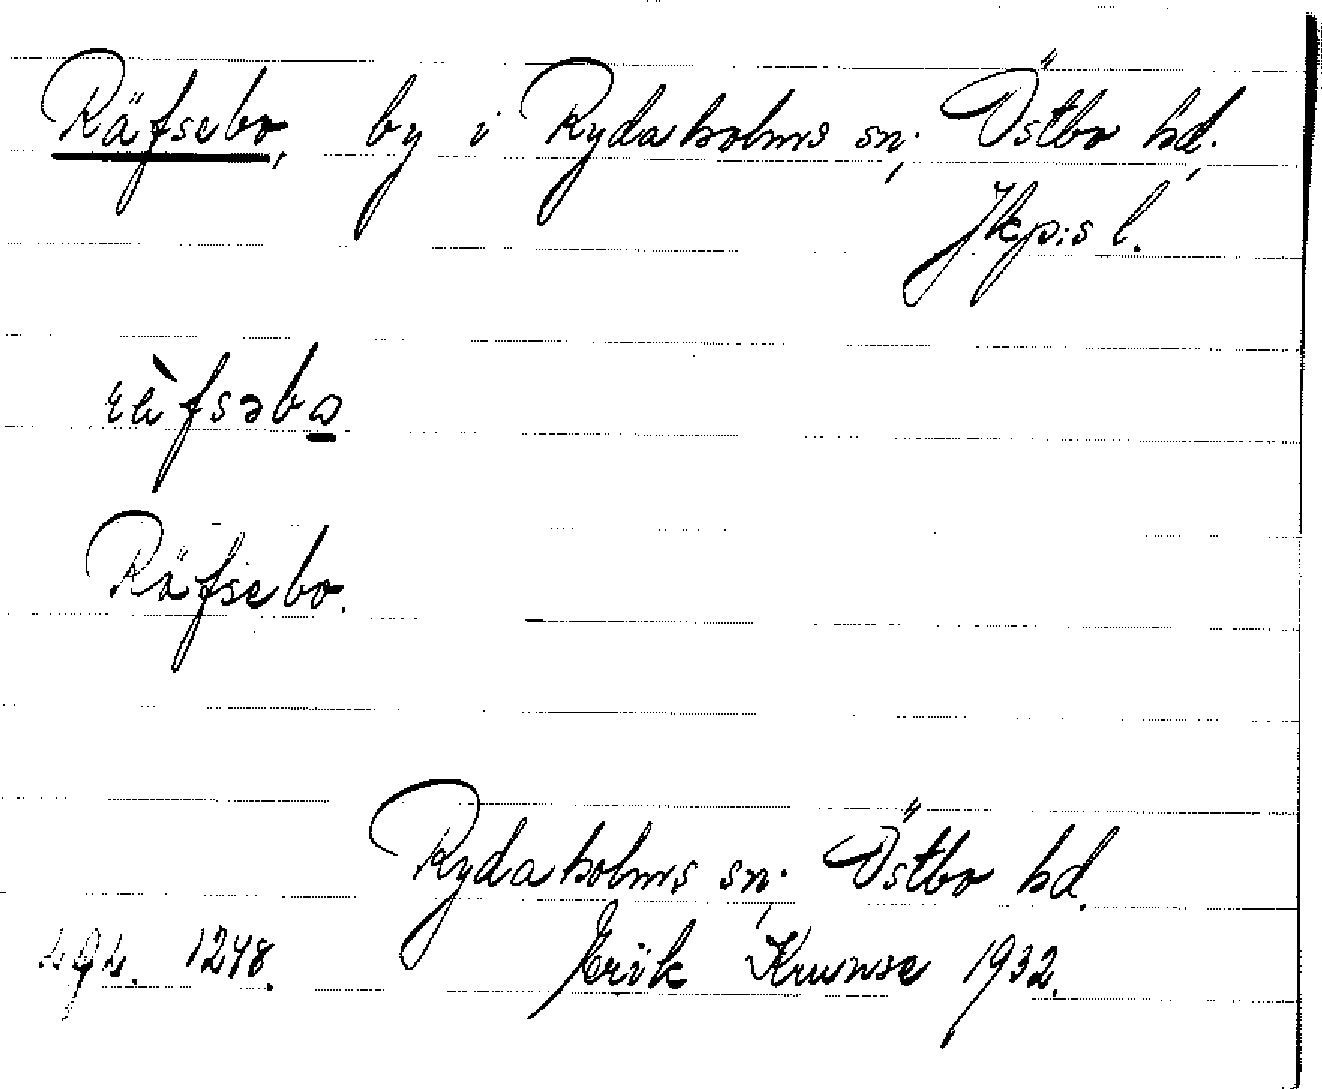 Räfsebo, by i Rydaholms sn; Östbo hd;
Jkp:s l.
räfsəbo
Räfsebo.
Rydaholms sn; Östbo hd.
1248. Erik 1932.